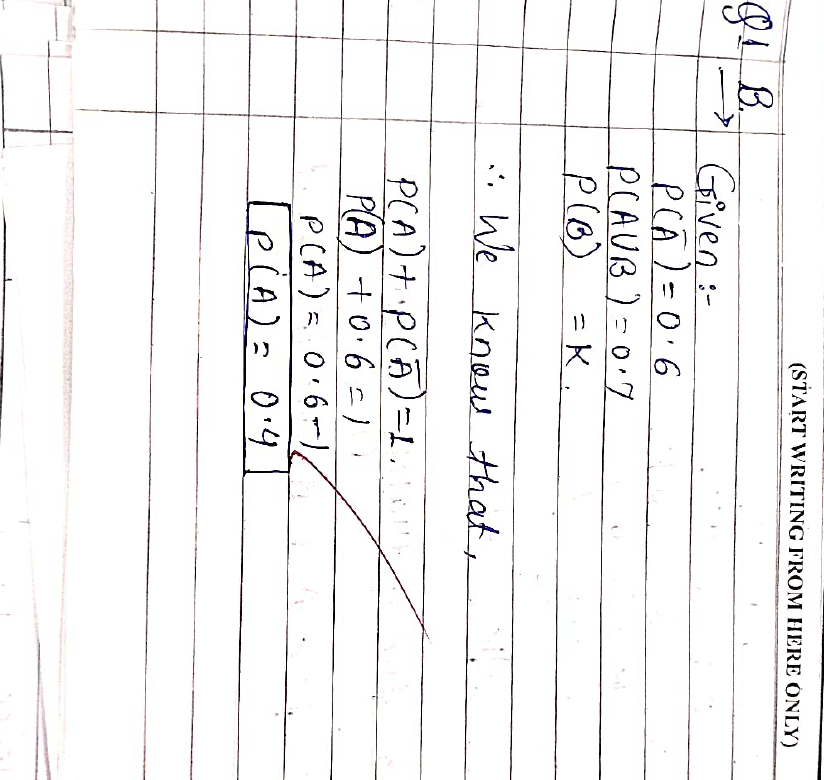 (START WRITING FROM HERE ONLY)
Q1 B.
→ Given :-
P(Ā) = 0.6
P(A∪B) = 0.7
P(B) = K.
∴ We know that,
P(A) + P(Ā) = 1.
P(A) + 0.6 = 1
P(A) = 0.6 - 1
P(A) = 0.4